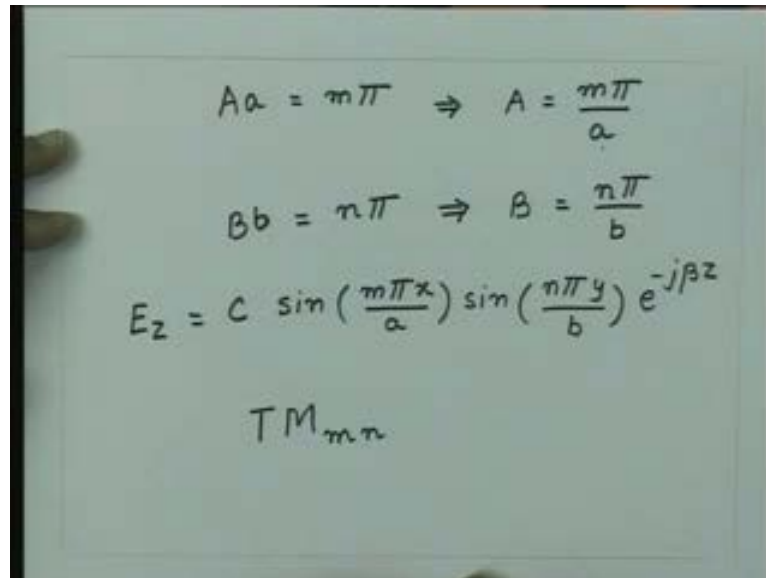 Aa = mπ ⇒ A = mπ/a
Bb = nπ ⇒ B = nπ/b
E_z = C sin(mπx/a) sin(nπy/b) e^{-jβz}
TM_{mn}